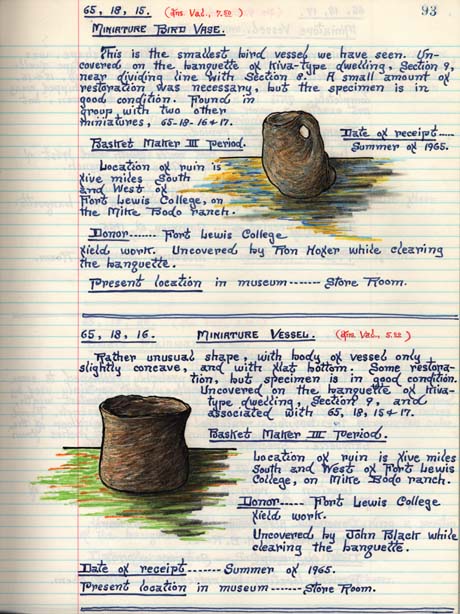 93
65, 18, 15. (Ins. Val., 7.50)
MINIATURE BIRD VASE.
This is the smallest bird vessel we have seen. Un-
covered on the banquette of Kiva-type dwelling, Section 9,
near dividing line with Section 8. A small amount of
restoration was necessary, but the specimen is in
good condition. Found in
group with two other
miniatures, 65-18-16+17.
Basket Maker III Period.
Date of receipt.....
Summer of 1965.
Location of ruin is
five miles South
and West of
Fort Lewis College, on
the Mike Bodo ranch.
Donor....... Fort Lewis College
field work. Uncovered by Ron Hofer while clearing
the banquette.
Present location in museum ------- Store Room.
65, 18, 16. MINIATURE VESSEL. (Ins. Val., 5.00)
Rather unusual shape, with body of vessel only
slightly concave, and with flat bottom. Some restora-
tion, but specimen is in good condition.
Uncovered on the banquette of Kiva-
type dwelling, Section 9, and
associated with 65, 18, 15+17.
Basket Maker III Period.
Location of ruin is five miles
South and West of Fort Lewis
College, on Mike Bodo ranch.
Donor..... Fort Lewis College
field work.
Uncovered by John Black while
clearing the banquette.
Date of receipt ------- Summer of 1965.
Present location in museum ------- Store Room.